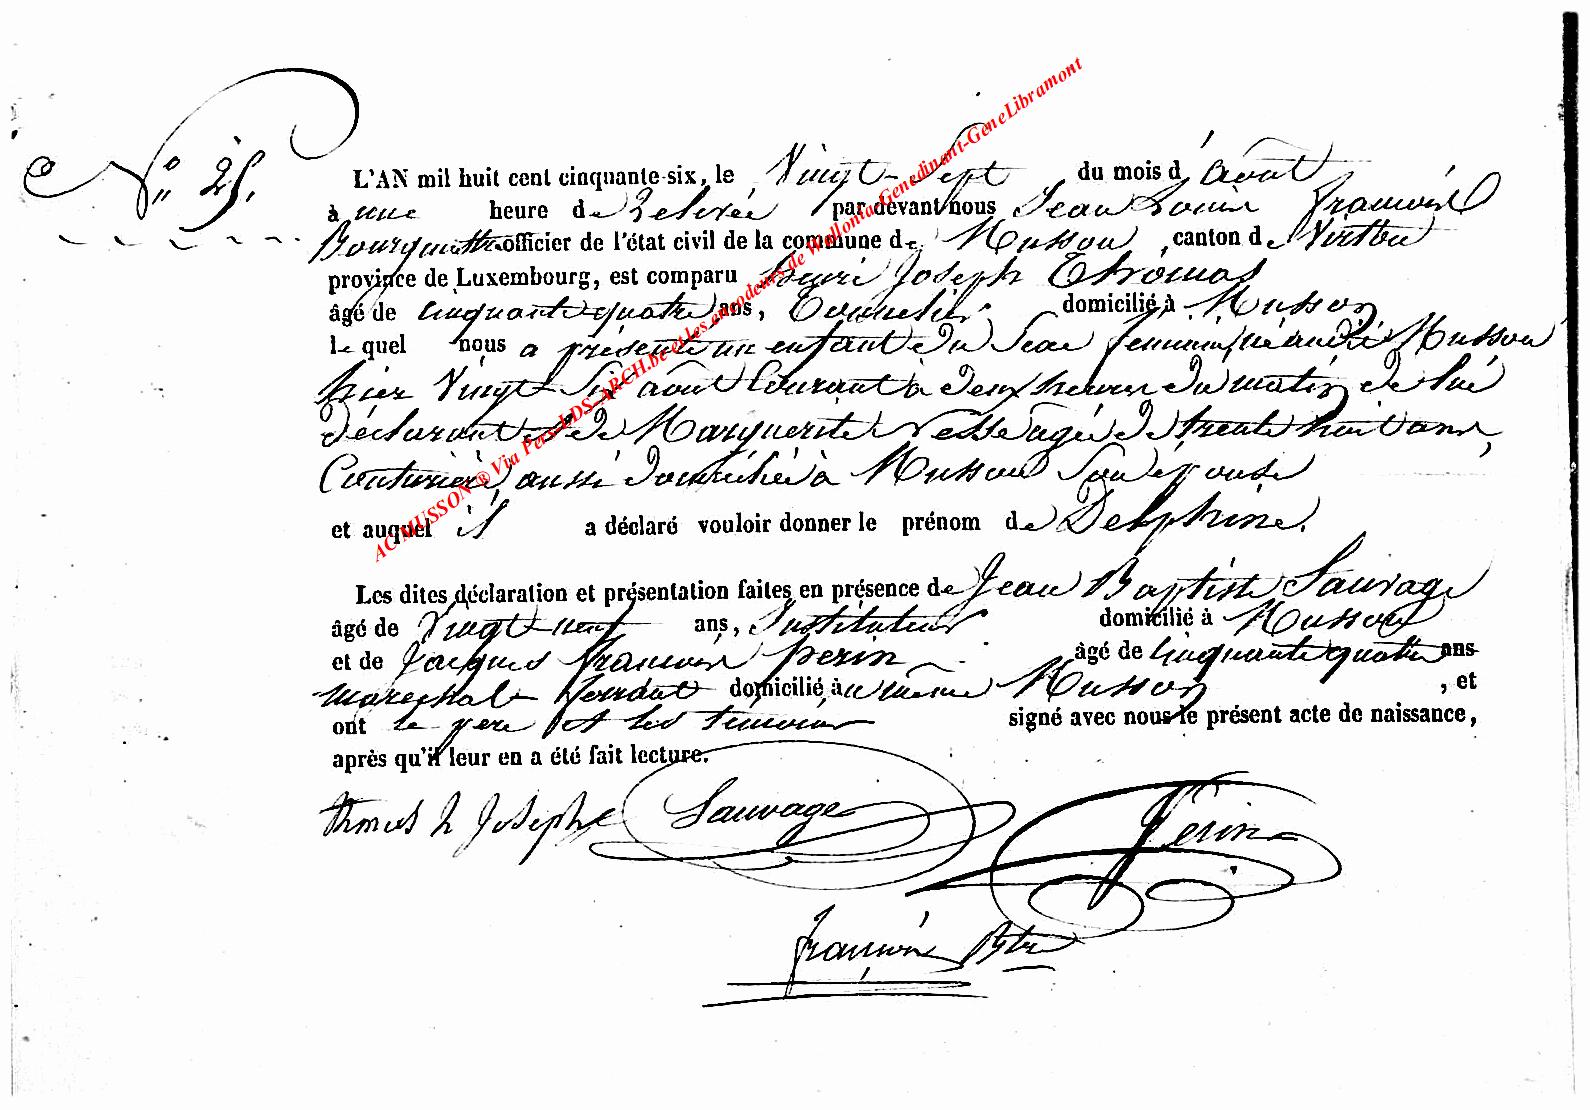 N° 25.
L'AN mil huit cent cinquante-six, le Vingt-Sept du mois d'août
à une heure de relevée par devant nous Jean Louis François
Bourguette officier de l'état civil de la commune de Musson, canton de Virton
province de Luxembourg, est comparu henri Joseph Thomas
âgé de cinquante quatre ans, Tonnelier domicilié à Musson
le quel nous a présenté un enfant du Sexe féminin, né audit Musson
hier Vingt Six août Courant à deux heures du matin de lui
déclarant et de Marguerite agée de trente huit ans,
Couturière, aussi domiciliée à Musson Son épouse
et auquel il a déclaré vouloir donner le prénom de Delphine.
Les dites déclaration et présentation faites en présence de Jean Baptiste Sauvage
âgé de Vingt-neuf ans, Instituteur domicilié à Musson
et de Jacques françois perin âgé de Cinquante quatre ans
marechal ferrant domicilié à u même Musson, et
ont le père et les témoins signé avec nous le présent acte de naissance,
après qu'il leur en a été fait lecture.
thomas h Joseph Sauvage Périn
françois
AC MUSSON ® Via Pers-LDS-ARCH.be et les encodeurs de Wallonia-Genedinant-GeneLibramont